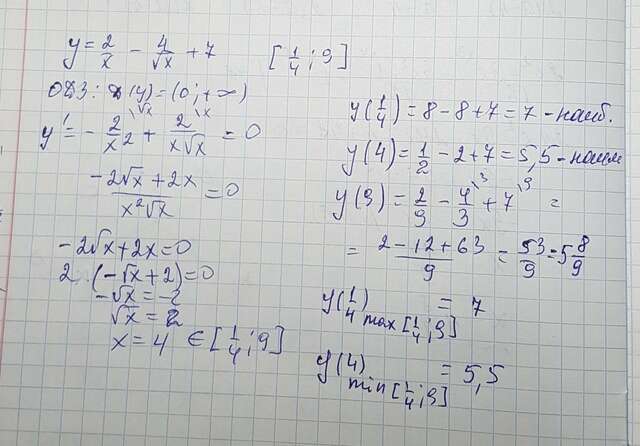 y = 2/x − 4/√x + 7 [1/4; 9]
ОДЗ: D(y) = (0; +∞)
y' = − 2/x² \√x + 2/(x√x) \x = 0
(−2√x + 2x)/(x²√x) = 0
−2√x + 2x = 0
2 · (−√x + 2) = 0
−√x = −2
√x = 2
x = 4 ∈ [1/4; 9]
y(1/4) = 8 − 8 + 7 = 7 − наиб.
y(4) = 1/2 − 2 + 7 = 5,5 − наим
y(9) = 2/9 − 4/3 \3 + 7 \9 =
= (2 − 12 + 63)/9 = 53/9 = 5 8/9
y(1/4) max [1/4; 9] = 7
y(4) min [1/4; 9] = 5,5